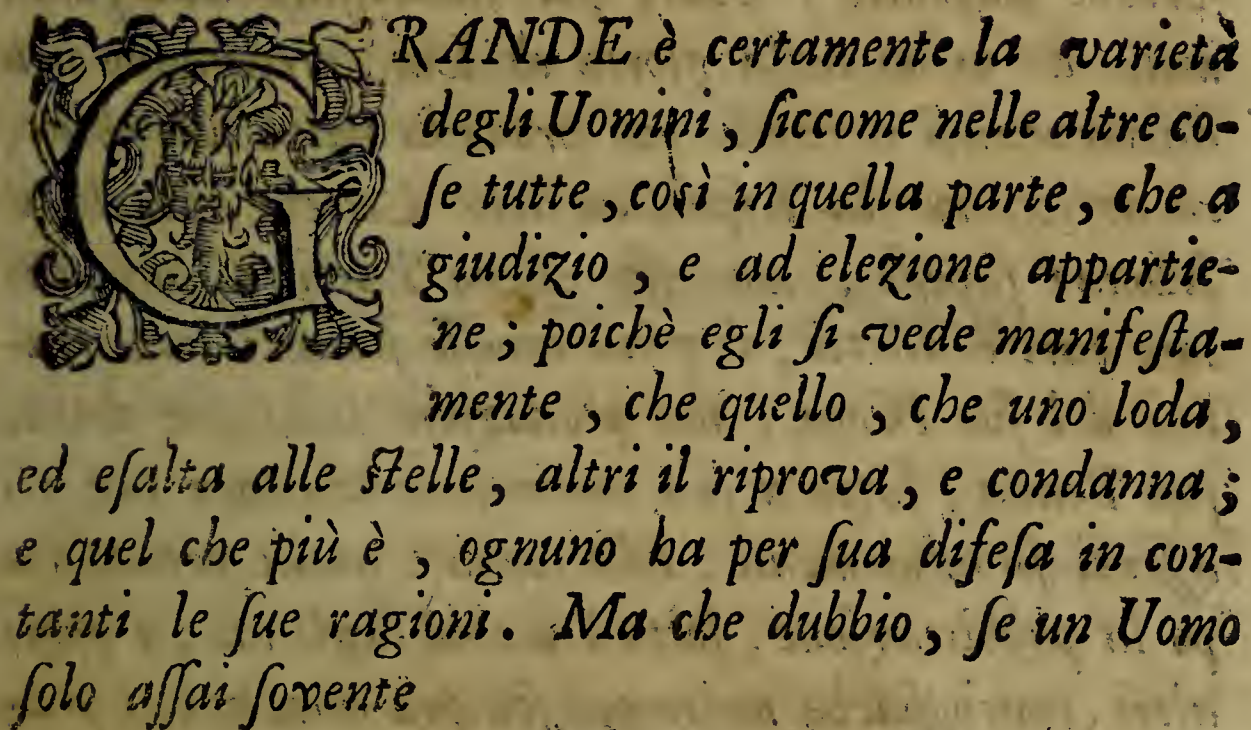 GRANDE è certamente la varietà
degli Uomini, ſiccome nelle altre co-
ſe tutte, coſì in quella parte, che a
giudizio, e ad elezione appartie-
ne; poichè egli ſi vede manifeſta-
mente, che quello, che uno loda,
ed eſalta alle ſtelle, altri il riprova, e condanna;
e quel che più è, ognuno ha per ſua difeſa in con-
tanti le ſue ragioni. Ma che dubbio, ſe un Uomo
ſolo aſſai ſovente